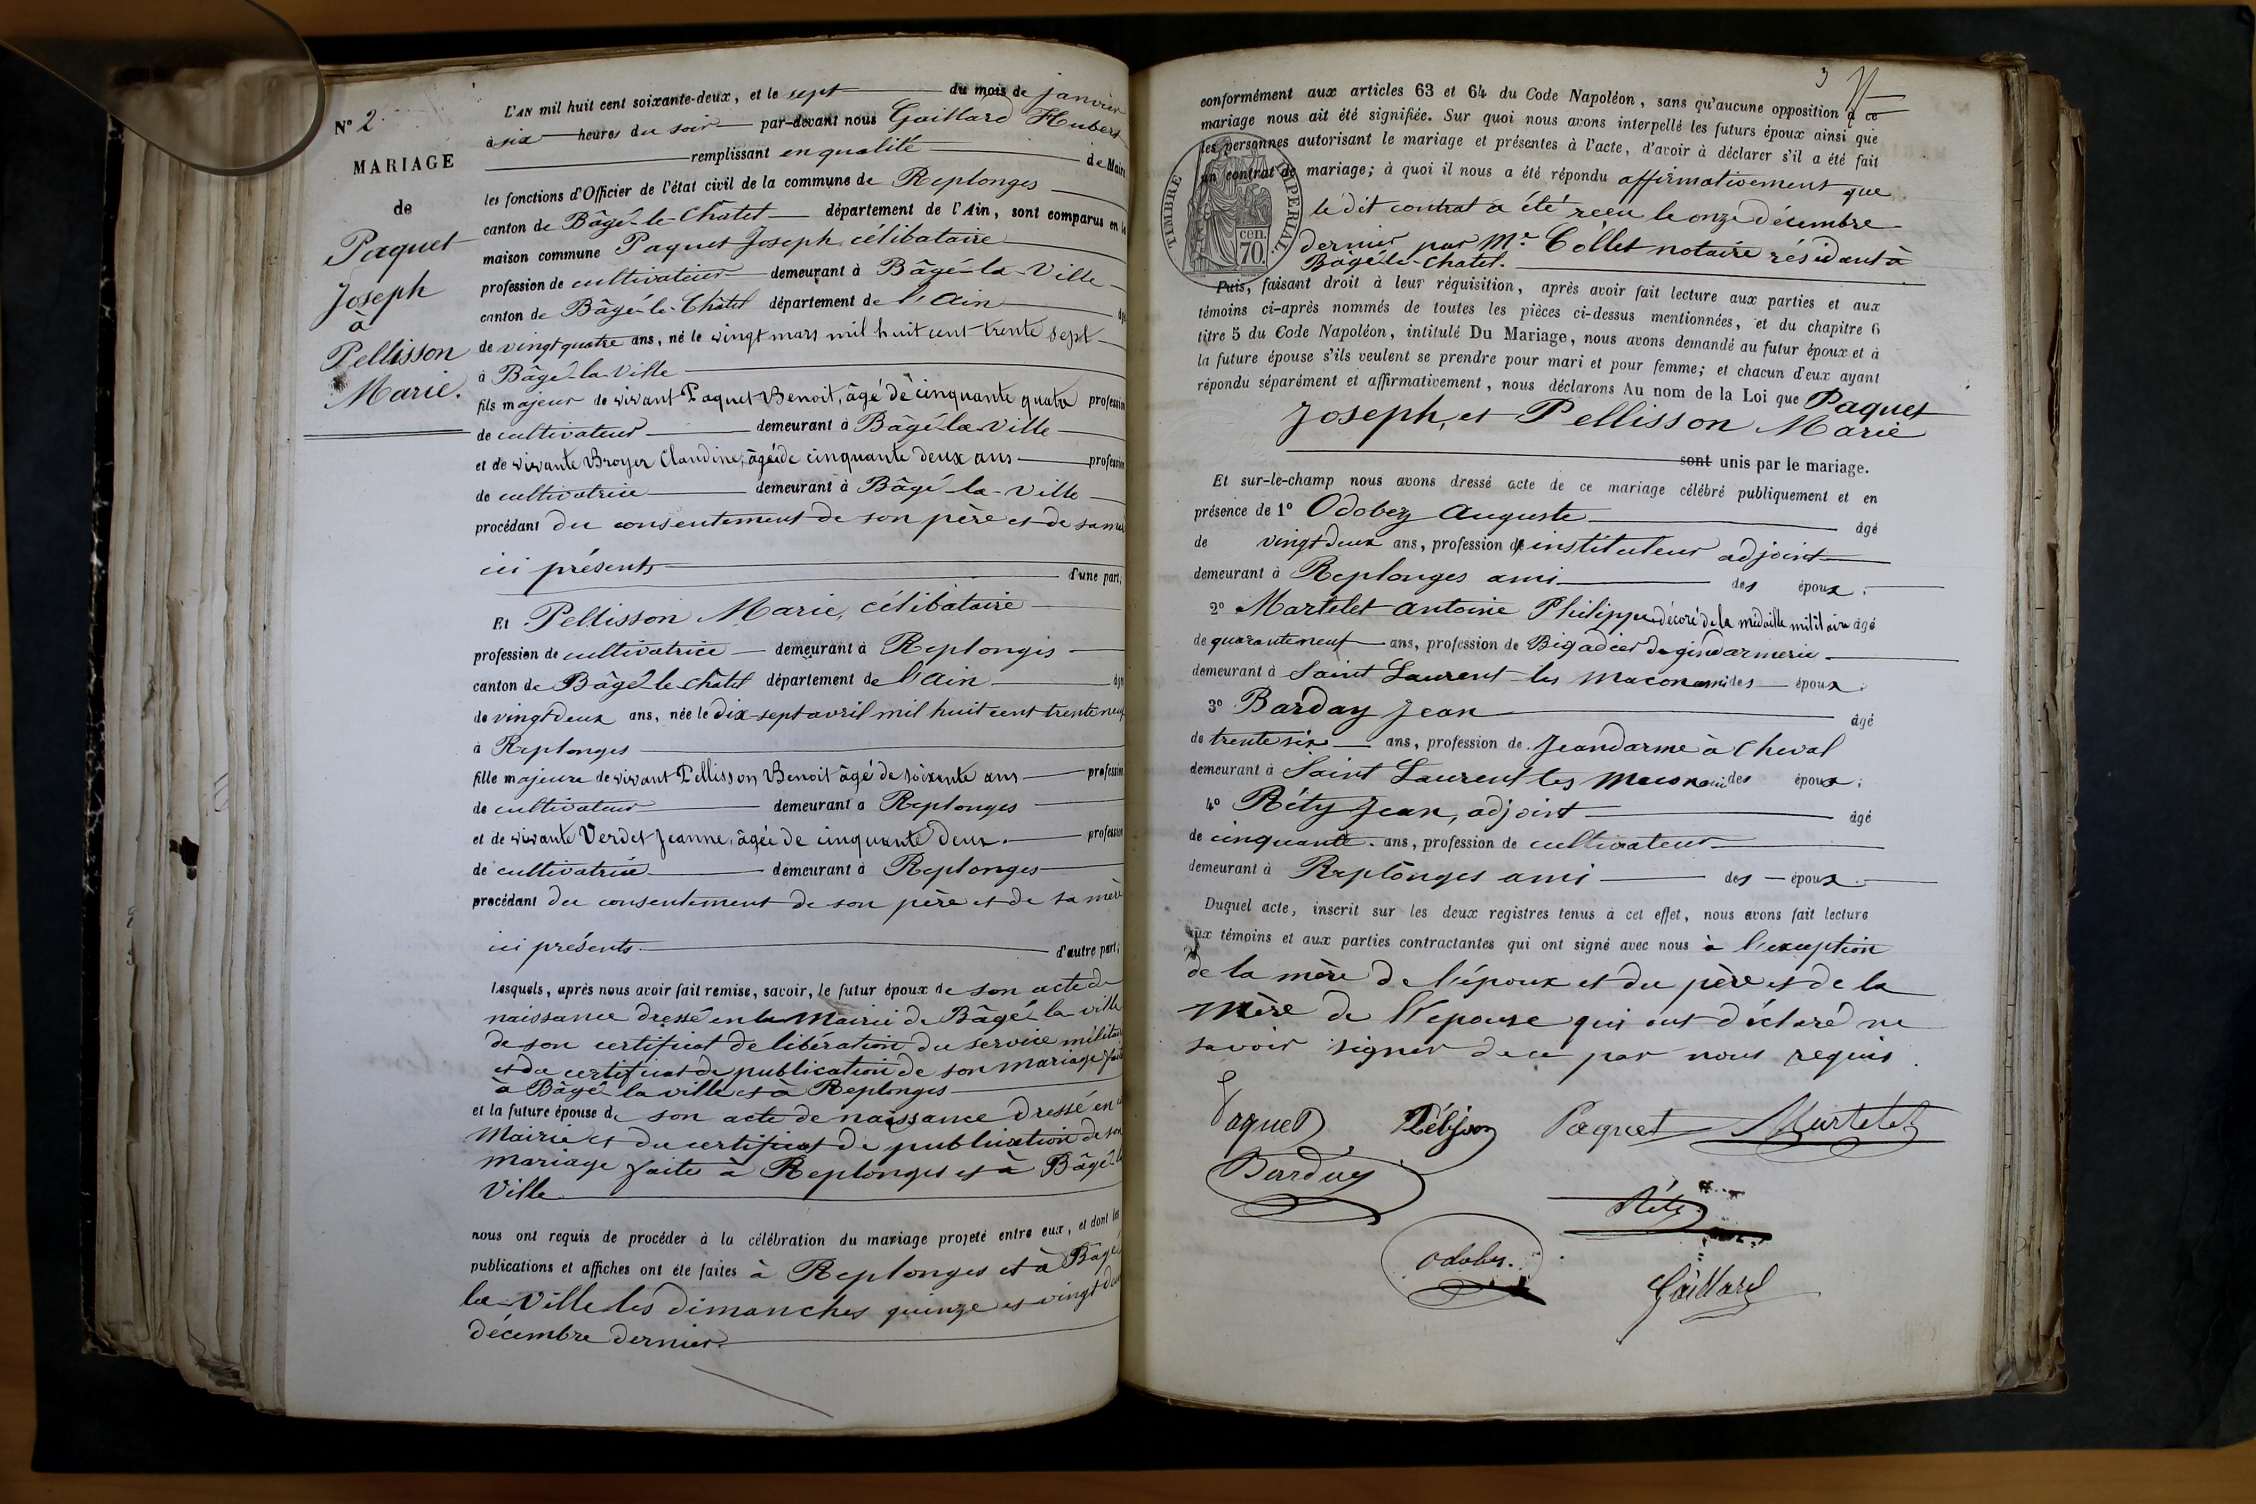 N° 2
MARIAGE
de
Paquet
Joseph
à
Pellisson
Marie.
L'AN mil huit cent soixante-deux, et le sept du mois de janvier
à six heures du soir par-devant nous Gaillard Hubert
remplissant en qualité de Maire
les fonctions d'Officier de l'état civil de la commune de Replonges
canton de Bâgé-le-Châtel département de l'Ain, sont comparus en la
maison commune Paquet Joseph, célibataire
profession de cultivateur demeurant à Bâgé-la-Ville
canton de Bâgé-le-Châtel département de l'Ain âgé
de vingt quatre ans, né le vingt mars mil huit cent trente sept
à Bâgé-la-Ville
fils majeur de vivant Paquet Benoit, âgé de cinquante quatre profession
de cultivateur demeurant à Bâgé-la-Ville
et de vivante Broyer Claudine, âgée de cinquante deux ans profession
de cultivatrice demeurant à Bâgé-la-Ville
procédant du consentement de son père et de sa mère
ici présents d'une part;
Et Pellisson Marie, célibataire
profession de cultivatrice demeurant à Replonges
canton de Bâgé-le-Châtel département de l'Ain âgée
de vingt deux ans, née le dix-sept avril mil huit cent trente neuf
à Replonges
fille majeure de vivant Pellisson Benoit âgé de soixante ans profession
de cultivateur demeurant à Replonges
et de vivante Verdet Jeanne, âgée de cinquante deux. profession
de cultivatrice demeurant à Replonges
procédant du consentement de son père et de sa mère
ici présents d'autre part;
Lesquels, après nous avoir fait remise, savoir, le futur époux de son acte de
naissance dressé en la Mairie de Bâgé la ville
de son certificat de libération du service militaire
et du certificat de publication de son mariage faite
à Bâgé la ville et à Replonges
et la future épouse de son acte de naissance dressé en
Mairie et du certificat de publication de son
mariage faite à Replonges et à Bâgé la
Ville
nous ont requis de procéder à la célébration du mariage projeté entre eux, et dont les
publications et affiches ont été faites à Replonges et à Bâgé
la-Ville les dimanches quinze et vingt deux
décembre dernier.
3
conformément aux articles 63 et 64 du Code Napoléon, sans qu'aucune opposition à ce
mariage nous ait été signifiée. Sur quoi nous avons interpellé les futurs époux ainsi que
les personnes autorisant le mariage et présentes à l'acte, d'avoir à déclarer s'il a été fait
un contrat de mariage; à quoi il nous a été répondu affirmativement que
le dit contrat a été reçu le onze décembre
dernier par Me Collet notaire résidant à
Bâgé-le-Chatel.
TIMBRE IMPERIAL
cen.
70.
Puis, faisant droit à leur réquisition, après avoir fait lecture aux parties et aux
témoins ci-après nommés de toutes les pièces ci-dessus mentionnées, et du chapitre 6
titre 5 du Code Napoléon, intitulé Du Mariage, nous avons demandé au futur époux et à
la future épouse s'ils veulent se prendre pour mari et pour femme; et chacun d'eux ayant
répondu séparément et affirmativement, nous déclarons Au nom de la Loi que Paquet
Joseph, et Pellisson Marie
sont unis par le mariage.
Et sur-le-champ nous avons dressé acte de ce mariage célébré publiquement et en
présence de 1° Odobez Auguste âgé
de vingt deux ans, profession de instituteur adjoint
demeurant à Replonges ami des époux;
2° Martelet Antoine Philippe décoré de la médaille militaire âgé
de quarante neuf ans, profession de Bigadier de gendarmerie
demeurant à Saint Laurent les Macon ami des époux;
3° Barday Jean âgé
de trente six ans, profession de Jeandarme à Cheval
demeurant à Saint Laurent les Macon ami des époux;
4° Réty Jean, adjoint âgé
de cinquante ans, profession de cultivateur
demeurant à Replonges ami des époux.
Duquel acte, inscrit sur les deux registres tenus à cet effet, nous avons fait lecture
aux témoins et aux parties contractantes qui ont signé avec nous à l'exception
de la mère de l'époux et du père et de la
Mère de l'épouse qui ont déclaré ne
savoir signer de ce par nous requis.
Paquet Pélisson Paquet Martelet
Barday
Réty
Odobez.
Gaillard